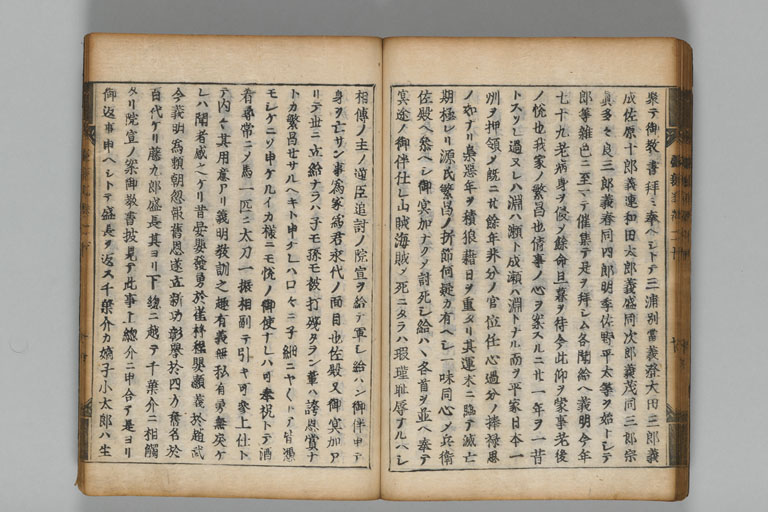 聚テ御教書拜ミ奉ヘシトテ三浦別當義澄大田三郎義
成佐原十郎義連和田太郎義盛同次郎義茂同三郎宗
實多々良三郎義春同四郎明季佐野平太等ヲ始トシテ
郎等雜色ニ至マテ催集テ是ヲ拜シム各聞給ヘ義明今年
七十九老病身ヲ侵シ餘命旦暮ヲ待今此仰ヲ蒙事老後
ノ悅也我家ノ繁昌也倩事ノ心ヲ案スルニ廿一年ヲ一昔
トスソレ過ヌレハ淵ハ瀬ト成瀬ハ淵トナル而ヲ平家日本一
州ヲ押領シ既ニ廿餘年非分ノ官位任心過分ノ捧禄思
ノ如ナリ梟惡年ヲ積狼藉日ヲ重タリ其運末ニ臨テ滅亡
期極レリ源氏繁昌ノ折節何疑カ有ヘシ一味同心シ兵衛
佐殿ヘ參ヘシ御冥加ナクシテ討死シ給ハヽ各首ヲ並ヘ奉テ
冥途ノ御伴仕レ山賊海賊シテ死ニタラハ瑕瑾恥辱ナルヘシ
相傳ノ主ノ逆臣追討ノ院宣ヲ給テ軍シ給ハン御伴申テ
身ヲ亡サン事爲家爲君永代ノ面目也佐殿又御冥加ア
リテ世ニ立給ナラハ子モ孫モ被打殘タラン輩ハ誇恩賞ナ
トカ繁昌セサルヘキト申ケレハ口々ニ子細ニヤ
モシケニソ申ケルイカ樣ニモ悅ノ御使ナレハ可奉祝トテ酒
肴尋常ニシテ馬一匹ニ太刀一振相副テ引ヤ可參上仕ト
テ内々其用意アリ義明教訓之趣有義無私有勇無哀ケ
レハ聞者感シヘケリ昔晏嬰發勇於崔杼程嬰顯義於趙武
今義明爲賴朝忽報舊恩遂立新功彰譽於四方舊名於
百代ケリ藤九郎盛長其ヨリ下總ニ越テ千葉介ニ相觸
タリ院宣ノ案御教書披見テ此事上總介ニ申合テ是ヨリ
御返事申ヘシトテ盛長ヲ返ス千葉介カ嫡子小太郎ハ生